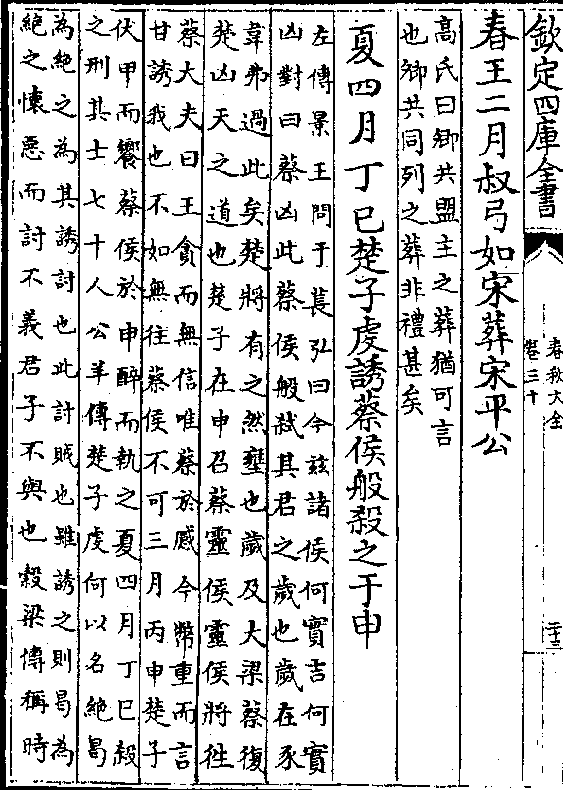 欽定四庫全書
春秋大全
卷三十
二十三
春王二月叔弓如宋葬宋平公
高氏曰卿共盟主之葬猶可言
也卿共同列之葬非禮甚矣
夏四月丁巳楚子虔誘蔡侯般殺之于申
左傳景王問于萇弘曰今兹諸侯何實吉何實
凶對曰蔡凶此蔡侯般弑其君之歲也歲在豕
韋弗過此矣楚將有之然壅也歲及大梁蔡復
楚凶天之道也楚子在申召蔡靈侯靈侯將往
蔡大夫曰王貪而無信唯蔡於感今幣重而言
甘誘我也不如無往蔡侯不可三月丙申楚子
伏甲而饗蔡侯於申醉而執之夏四月丁巳殺
之刑其士七十人公羊傳楚子虔何以名絶曷
為絶之為其誘討也此討賊也雖誘之則曷為
絶之懷惡而討不義君子不與也榖梁傳稱時